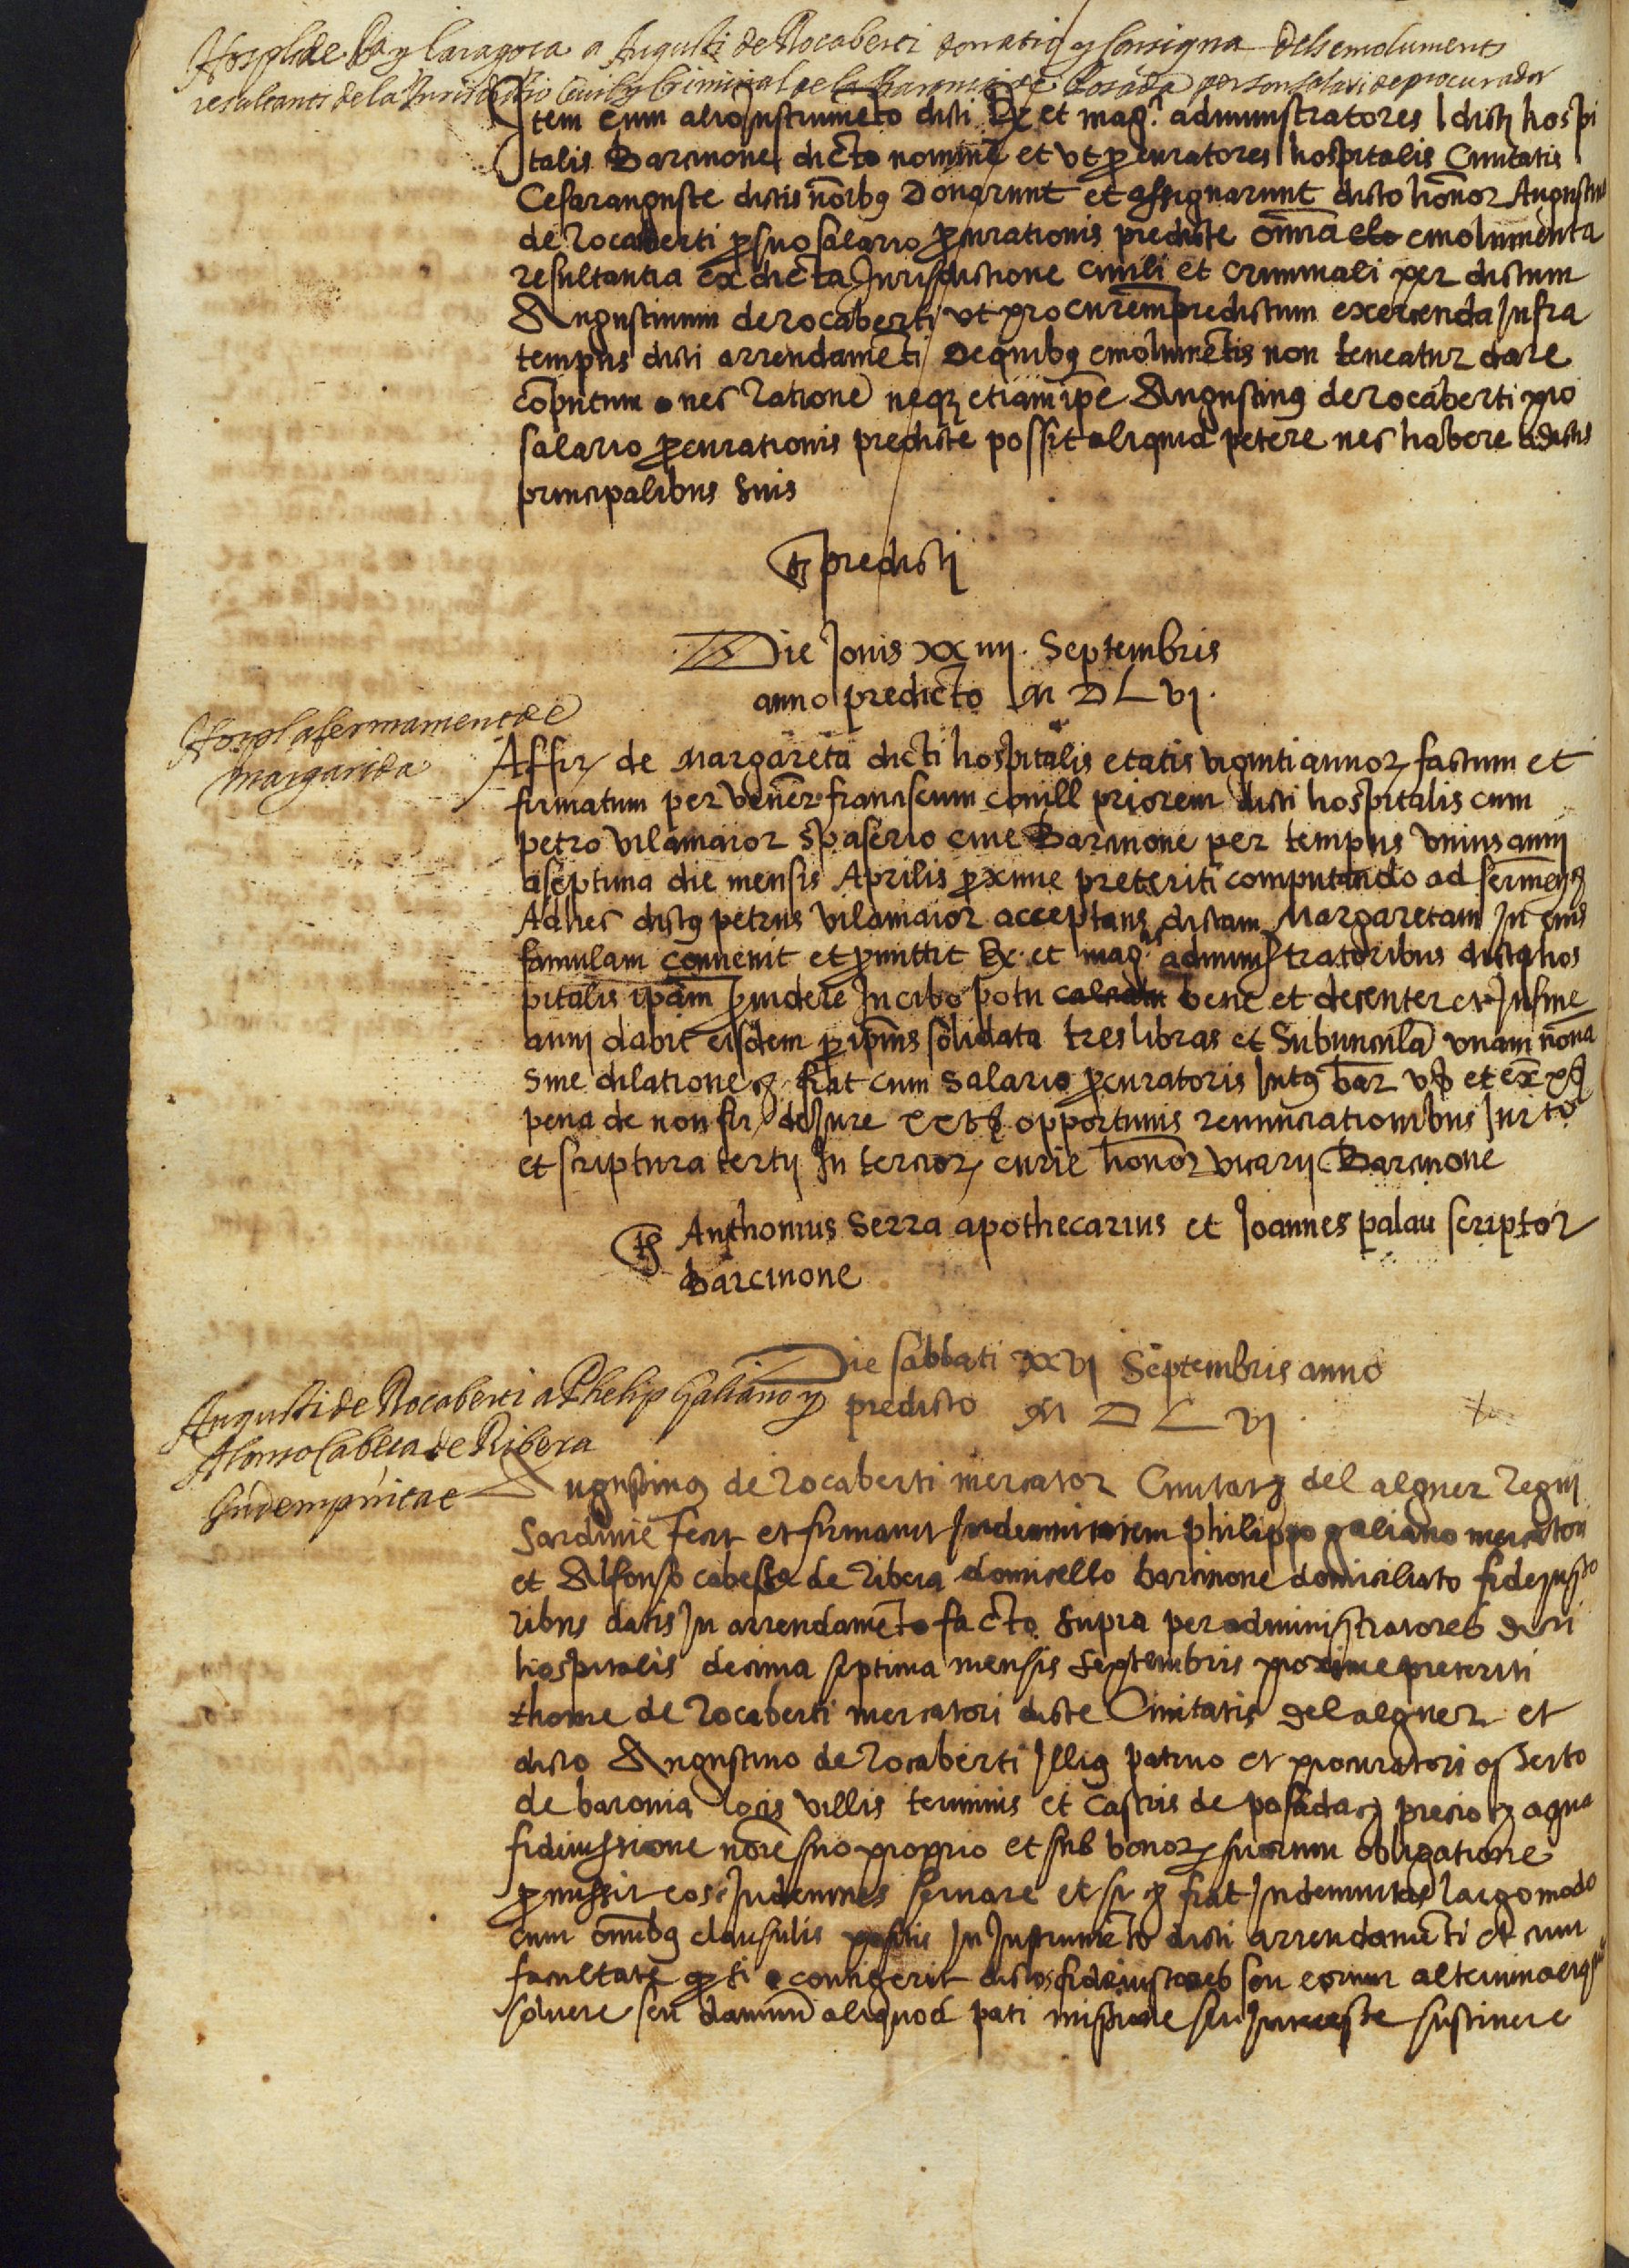 Hospl de Ba y Caragoça a Augusti de Rocaberti donatio y consigna dels emoluments
resultants de la Jurisdictio Civil y Criminal de la Baronia de Posada per son salari de procurador
Item cum alio Instrumeto dicti Rx et mag.ci administratores dicti hospi
talis Barcinone dicto nomine et ut procuratores hospitalis Civitatis
Cesarauguste dictis noibus Donarunt et assignarunt dicto honor Augustino
de rocaberti pro suo salario procurationis predicte omnia emolumenta
resultantia ex dicta Jurisdictione civili et criminali per dictum
Augustinum de rocaberti ut procurem predictum exercenda Infra
tempus dicti arrendameti De quibus emolumetis non teneatur dare
coputum nec ratione neq etiam ipe Augustinus de rocaberti pro
salario procurationis predicte possit aliquid petere nec habere a dictis
principalibus suis
ts predicti
Die Jovis xxiiij. Septembris
anno predicto M D L vj.
Hospl afermament de
margarida
Affir de Margareta dicti hospitalis etatis viginti annor factum et
firmatum per vener. franciscum conill priorem dicti hospitalis cum
petro vilamaior spaserio cive Barcinone per tempus unius anni
a septima die mensis Aprilis proxime preteriti computando ad
Ad hec dictus petrus vilamaior acceptans dictam Margaretam In eius
famulam convenit et promittit Rx. et mag.cis administratoribus dicti hos
pitalis ipam providere In cibo potu bene et decenter et In fine
anni dabit eisdem pro ipius solidata tres libras et unam
sine dilatione fiat cum salario procuratoris Intus bar
pena de non fir de Jure opportunis renunciationibus Jur to
et scriptura tertij In tercior curie honor vicarij Barcinone
ts Anthonius Serra apothecarius et Joannes palau scriptor
Barcinone
Die sabbati xxvj Septembris anno
predicto M D L vj.
Augusti de Rocaberti a Phelip Galiano y
Alonso Cabeça de Ribera
Indempnitat
Augustinus de rocaberti mercator Civitatis del alguer regni
Sardinie fecit et firmavit Indemnitatem philippo galiano mercatori
et Alfonso cabessa de ribera domicello barcinone domiciliato fidejusso
ribus datis In arrendameto facto supra per administratores dicti
hospitalis decima septima mensis septembris proxime preteriti
thome de rocaberti mercatori dicte Civitatis del alguer et
dicto Augustino de rocaberti Illius patruo et procuratori asserto
de baronia locis villis terminis et castris de posada precio a qua
fideiussione noie suo proprio et sub bonor suorum obligatione
promissit eos Indemnes servare et fiat Indemnitas largo modo
cum omnibus clausulis positis In Instrumeto dicti arrendameti et cum
facultate si contigerit dictos fideiussores seu eorum alterum aliquid
solvere seu damnu aliquod pati missione seu Interesse sustinere